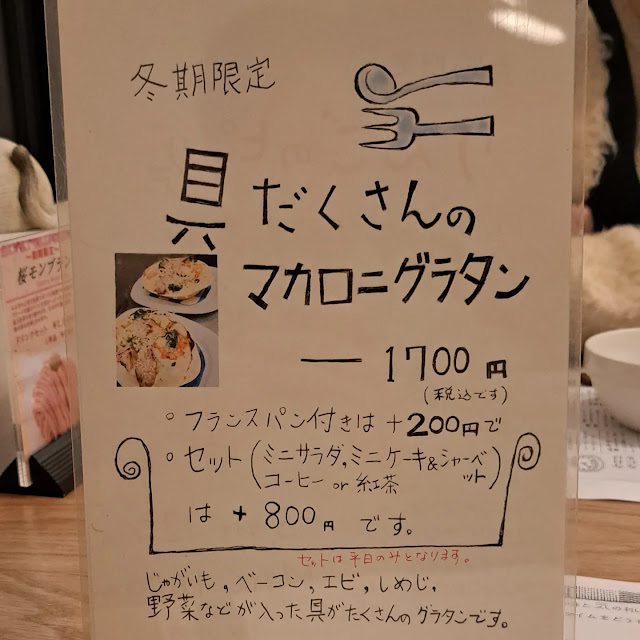 冬期限定
具だくさんの
マカロニグラタン
― 1700円
(税込です)
○フランスパン付きは+200円で
○セット(ミニサラダ,ミニケーキ&シャーベット
コーヒー or 紅茶)
は + 800円 です。
セットは平日のみとなります。
じゃがいも,ベーコン,エビ,しめじ,
野菜などが入った具がたくさんのグラタンです。
桜モンブラン